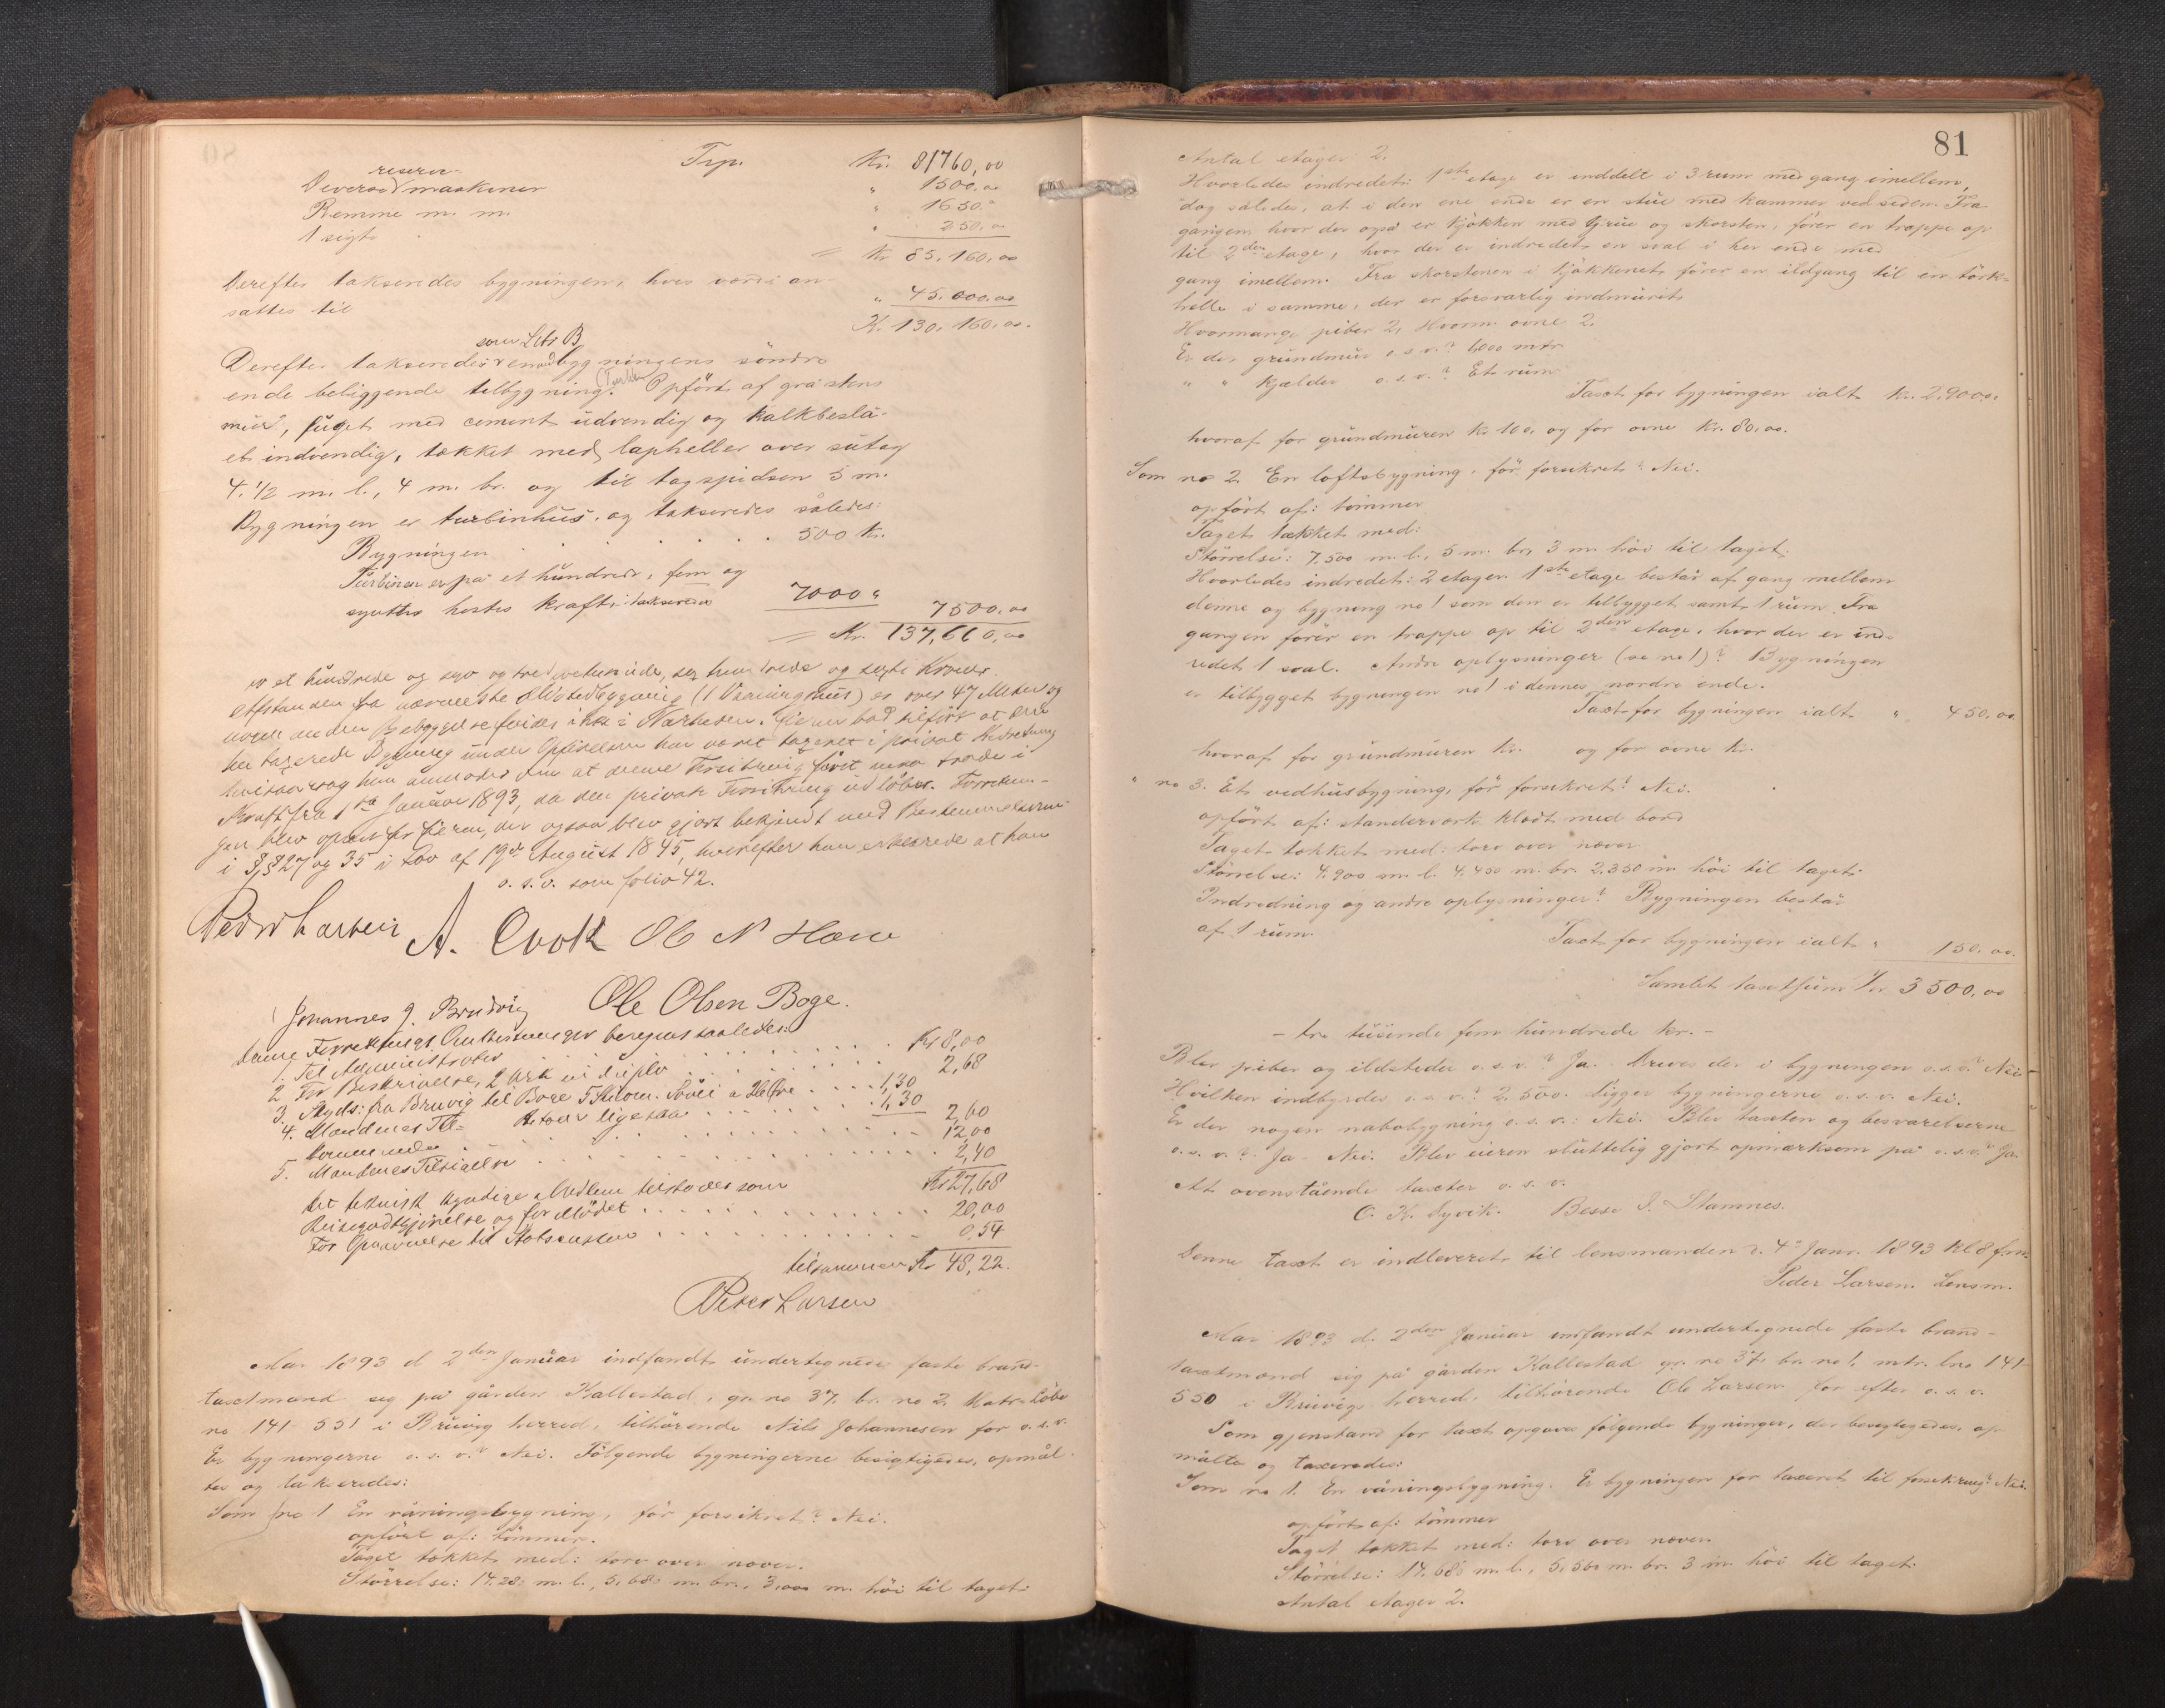 Trp. Kr. 81760,00
reserve-
Diverse maskiner " 1500.00
Remme m. m. " 1650.-
1 sigte " 250.00
= Kr 85,160,00
Derefter takseredes bygningen, hves værdi an-
sattes til " 45.000.00
Kr. 130,160,00.
som Litr B
Derefter takseredes en ved bygningens söndre
ende beliggende tilbygning. Opfört af grästens
mur, fuget med cement udvendig og kalkbeslå-
et indvendig, tækket med lapheller over sutag
4.1/2 m. l., 4 m. br. og til tagspidsen 5 m.
Bygningen er turbinhus, og takseredes således:
Bygningen . . . . . 500 Kr.
Turbinen er på et hundrede, fem og
sytti hestes kraft, takseredes 7000 " 7500.00
= Kr. 137,660,00
er et hundrede og syv og tredivetusinde, sex hundrede og sexti Kroner.
Afstanden fra nærmeste Ildstedbygning (1 Vaaningshus) er over 47 Meter og
nogen anden Bebyggelse findes ikke i Nærheden. Eieren bad tilfört at den
her taxerede Bygning under Opförelsen har været taxeret i privat Indretning
hvisaarsag han anmoder om at denne Forsikring först maa træde i
Kraft fra 1ste Januar 1893, da den private Forsikring udlöber. Forretnin-
gen blev oplæst for Eieren, der ogsaa blev gjort bekjendt med Bestemmelserne
i §§ 27 og 35 i Lov af 19de August 1845, hvorefter han erklærede at han
o. s. v. som folio 42.
Peder Larsen A. Cook Ole N Hane
Johannes J. Brudvig Ole Olsen Boge.
Denne Forretnings Omkostninger beregnes saaledes:
1. Til Administrator . . . . . Kr 8,00
2. For Beskrivelse, 2 Ark in duplo . . . . 2,68
3. Skyds: fra Bruvig til Boge 5 Kilom. Sövei a 26 Öre . . . . 1,30
Retour ligesaa . . . . 1,30 2,60
4. Mændenes Til-
kommende . . . . 12,00
5. Mændenes Tilsigelse . . . . 2,40
Kr 27,68
Det teknisk kyndige Medlem tilstodes som
Reisegodtgjörelse og for Mödet . . . . 20,00
For Oversendelse til Attestation . . . . 0,54
tilsammen Kr 48,22.
Peder Larsen
Aar 1893 d 2den Januar indfandt undertegnede faste brand-
taxtmænd sig på gården Kallestad, gr. no 37. br. no 2 Matr. Löbe
no 141-551 i Bruvig herred, tilhörende Nils Johannesen for o.s.v.
Er bygningerne o. s. v.? Nei. Fölgende bygningerne besigtigedes, opmål-
tes og takseredes:
Som no 1 En våningsbygning, för forsikret? Nei.
opfört af: tömmer.
Taget tækket med: torv over næver.
Störrelse: 14.280 m. l., 5.680 m. br., 3,000 m. höi til taget.
81
Antal etager 2.
Hvorledes indredet: 1ste etage er inddelt i 3 rum med gang imellem,
dog således, at i den ene ende er en stue med kammer ved siden. Fra
gangen hvor der også er kjökken med grue og skorsten, förer en trappe op
til 2den etage, hvor der er indredet en sval i hver ende med
gang imellem. Fra skorstenen i kjökkenet förer en ildgang til en törk-
helle i samme, der er forsvarlig indmuret.
Hvormange piber 2, Hvorm. ovne 2.
Er der grundmur o. s. v.? 1,000 mtr
" " kjælder o. s. v.? Et rum
Taxt for bygningen ialt Kr. 2,900.00
hvoraf for grundmuren Kr 100, og for ovne Kr. 80,00.
Som no 2. En loftsbygning, för forsikret? Nei.
opfört af: tömmer
Taget tækket med:
Störrelse: 7.500 m. l., 5 m. br, 3 m. höi til taget.
Hvorledes indredet: 2 etager. 1ste etage består af gang mellem
denne og bygning no 1 som den er tilbygget samt 1 rum. Fra
gangen förer en trappe op til 2den etage, hvor der er ind-
redet 1 sval. Andre oplysninger (se no 1)? Bygningen
er tilbygget bygningen no 1 i dennes nordre ende.
Taxt for bygningen ialt " 450,00
hvoraf for grundmuren Kr. og for ovne Kr.
" no 3. Et vedhusbygning, för forsikret? Nei.
opfört af: standerværk klædt med bord
Taget tækket med: torv over næver
Störrelse: 4.900 m. l. 4.400 m. br. 2.350 m höi til taget.
Indredning og andre oplysninger? Bygningen består
af 1 rum.
Taxt for bygningen ialt " 150.00.
Samlet taxtsum Kr 3500,00
- tre tusinde fem hundrede kr. -
Blev piber og ildsteder o. s. v.? Ja. Drives der i bygningen o.s.v.? Nei
Hvilken indbyrdes o. s. v.? 2,500. Ligger bygningerne o. s. v. Nei.
Er der nogen nabobygning o. s. v.: Nei. Blev taxten og besvarelserne
o. s. v.? Ja - Nei. Blev eieren sluttelig gjort opmærksom på o.s.v.? Ja.
At ovenstående taxter o. s. v.
O. K. Syvik. Besse I. Stamnes.
Denne taxt er indleveret til lensmanden d. 4de Janr. 1893 Kl 8 f.m.
Peder Larsen. Lensm.
Aar 1893 d. 2den Januar indfandt undertegnede faste brand-
taxtmænd sig på gården Kallestad gr. no 37, br. no 1, mtr. lno 141-
550 i Bruvigs herred, tilhörende Ole Larsen for efter o. s. v.
Som gjenstand for taxt opgaves fölgende bygninger, der besigtigedes, op-
måltes og taxeredes:
Som no 1. En våningsbygning. Er bygningen för taxeret til forsikring? Nei.
opfört af: tömmer
Taget tækket med: torv over næver.
Störrelse: 14.680 m. l., 5,560 m. br. 3 m. höi til taget.
Antal etager 2.